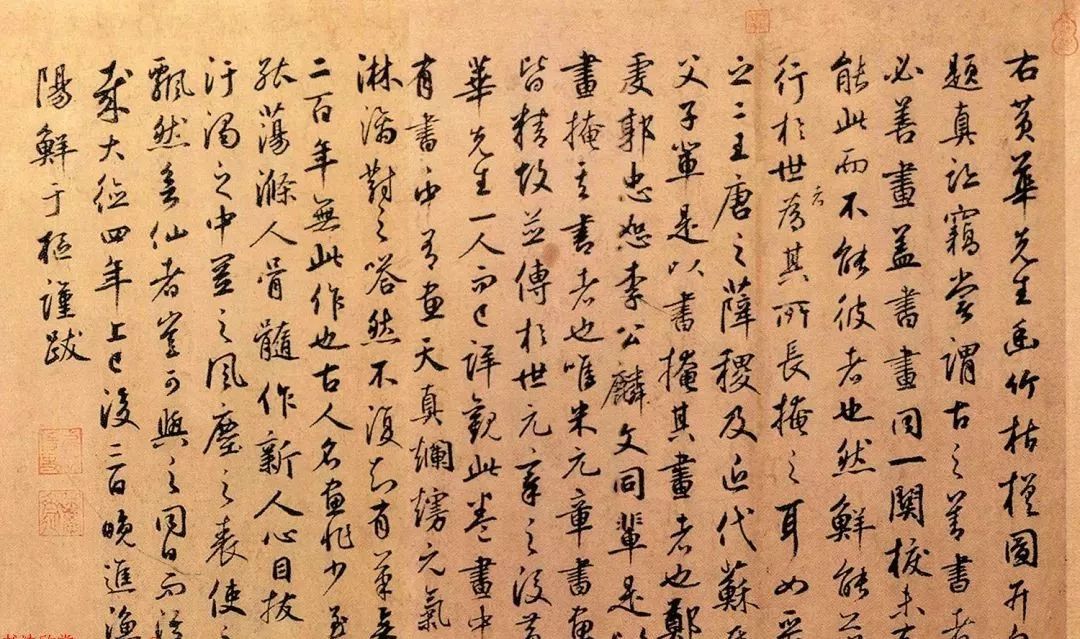 右黃華先生幽竹枯槎圖并
題真迹竊嘗謂古之善書者
必善畫蓋書畫同一關捩未有
能此而不能彼者也然鮮能並
行於世者為其所長掩之耳如晉
之二王唐之薛稷及近代蘇氏
父子輩是以書掩其畫者也鄭
虔郭忠恕李公麟文同輩是以
畫掩其書者也唯米元章書畫
皆精故並傳於世元章之後黃
華先生一人而已詳觀此卷畫中
有書中有畫天真爛熳元氣
淋漓對之嗒然不復知有筆矣
二百年無此作也古人名畫非少至
能蕩滌人骨髓作新人心目拔
汙濁之中置之風塵之表使之
飄然若仙者豈可與之同日而語
哉大德四年上巳後三日晚進漁
陽鮮于樞謹跋